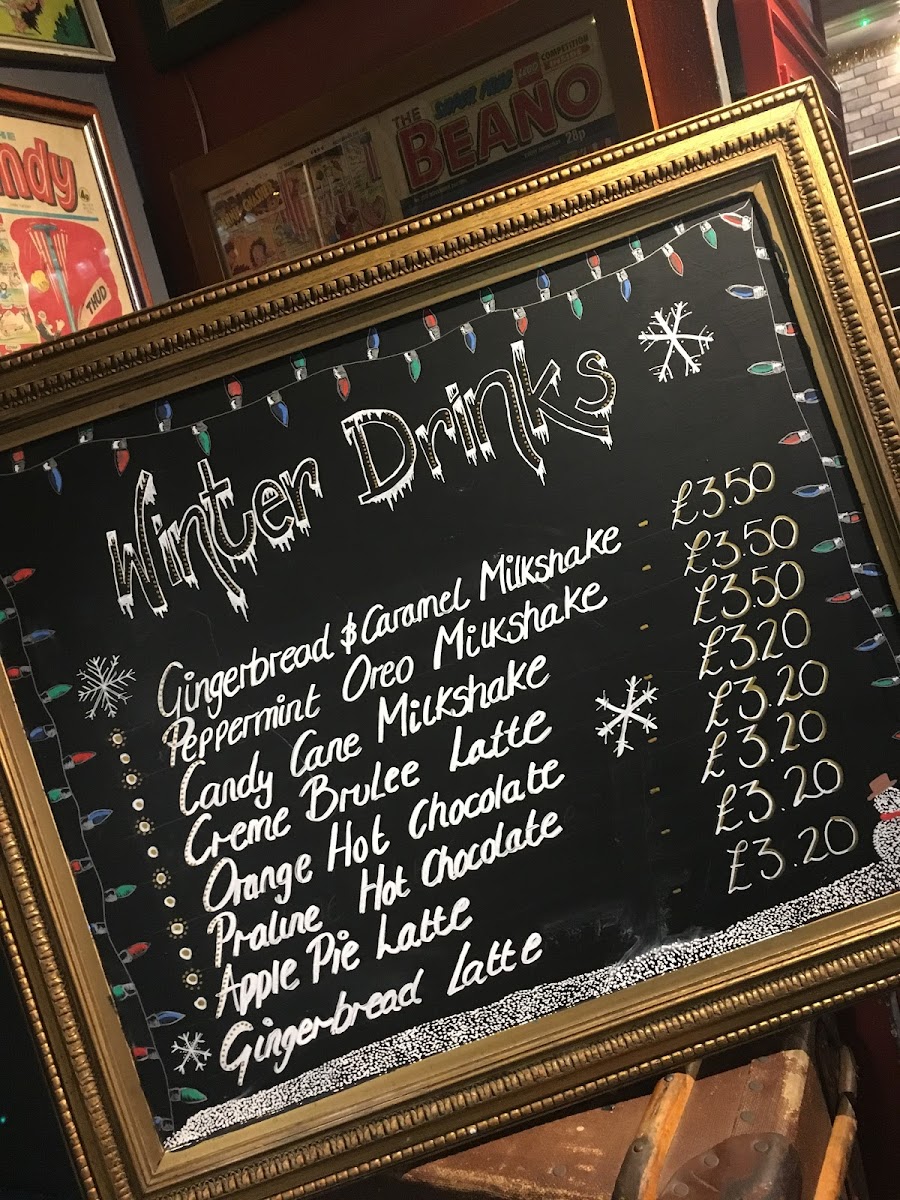 THE
andy
4p
THUD
THE
BEANO
COMPETITION
28p
Winter Drinks
Gingerbread & Caramel Milkshake - £3.50
Peppermint Oreo Milkshake - £3.50
Candy Cane Milkshake £3.50
Creme Brulee Latte - £3.20
Orange Hot Chocolate - £3.20
Praline Hot Chocolate - £3.20
Apple Pie Latte - £3.20
Gingerbread Latte - £3.20